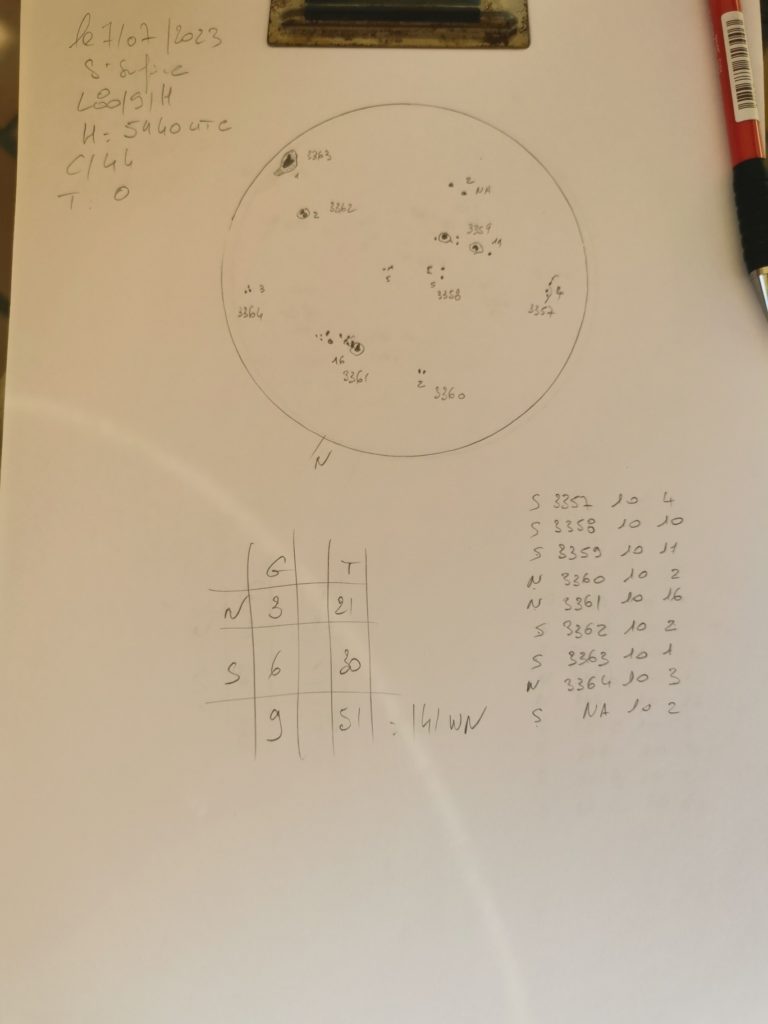 le 7/07/2023
H = 5h40 UTC
C/44
T: 0
3363
1
2
NA
2 3362
3359
11
3
3364
5
5
3358
3357
4
16
3361
2
3360
N
S 3357 10 4
S 3358 10 10
S 3359 10 11
N 3360 10 2
N 3361 10 16
S 3362 10 2
S 3363 10 1
N 3364 10 3
S NA 10 2
G T
N 3 21
S 6 30
9 51 = 141 WN